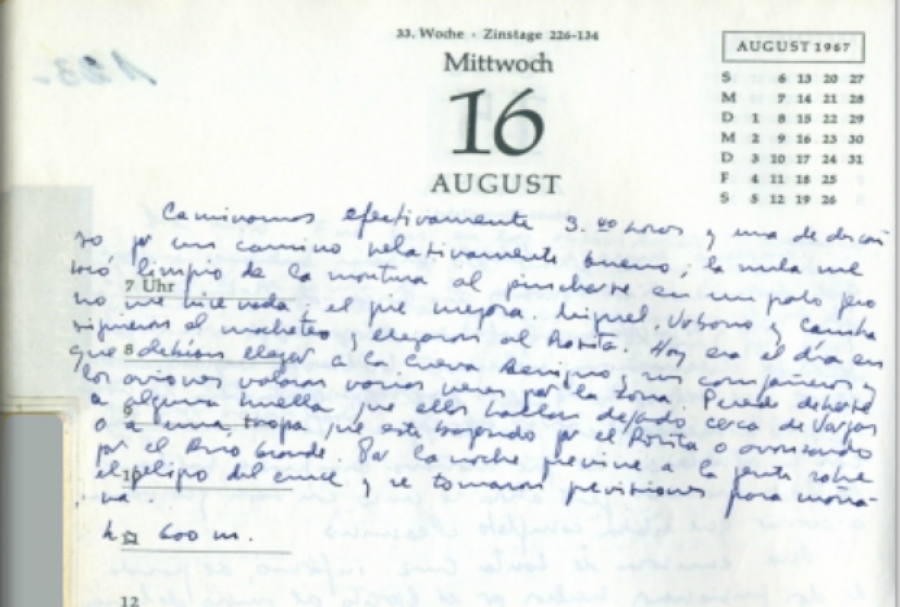 33. Woche · Zinstage 226-134
Mittwoch
16
AUGUST
AUGUST 1967
S 6 13 20 27
M 7 14 21 28
D 1 8 15 22 29
M 2 9 16 23 30
D 3 10 17 24 31
F 4 11 18 25
S 5 12 19 26
Caminamos efectivamente 3.40 horas y una de descan
so por un camino relativamente bueno; la mula me
limpio de la montura al pincharse en un palo pero
7 Uhr
no me hice nada, el pie mejora. Miguel, Urbano y Camba
siguieron el macheteo y llegaron al Rosita. Hoy era el día en
que debían llegar a la Cueva Benigno y sus compañeros y
8
los aviones volaron varias veces por la zona. Puede deberse
a alguna huella que ellos hallan dejado cerca de Vargas
9
o a una tropa que esté bajando por el Rosita o avanzando
por el Río Grande. Por la noche previne a la gente sobre
el peligro del cruce y se tomaron previsiones para maña-
10
na.
h 600 m.
12